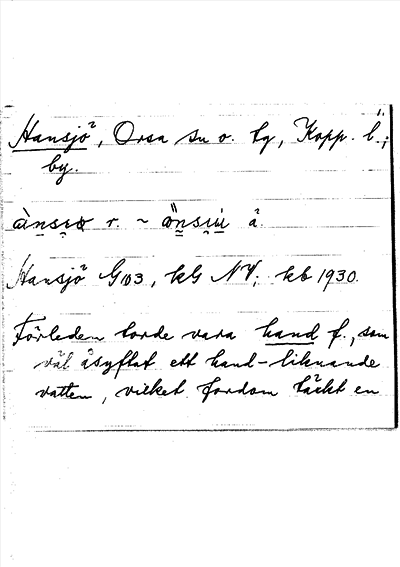 Hansjö, Orsa sn o. tg, Kopp. l.;
by.
r. ~ å.
Hansjö G 103, kG NV; kb 1930.
Förleden torde vara hand f., som
väl åsyftat ett hand-liknande
vatten, vilket fordom täckt en